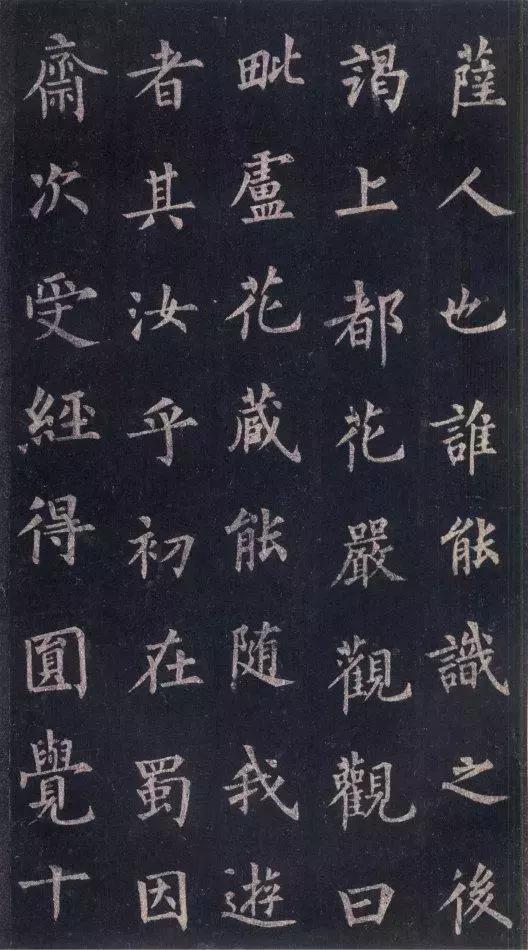 薩人也誰能識之後
謁上都花嚴觀觀曰
毗盧花蔵能随我遊
者其汝乎初在蜀因
齋次受經得圓覺十